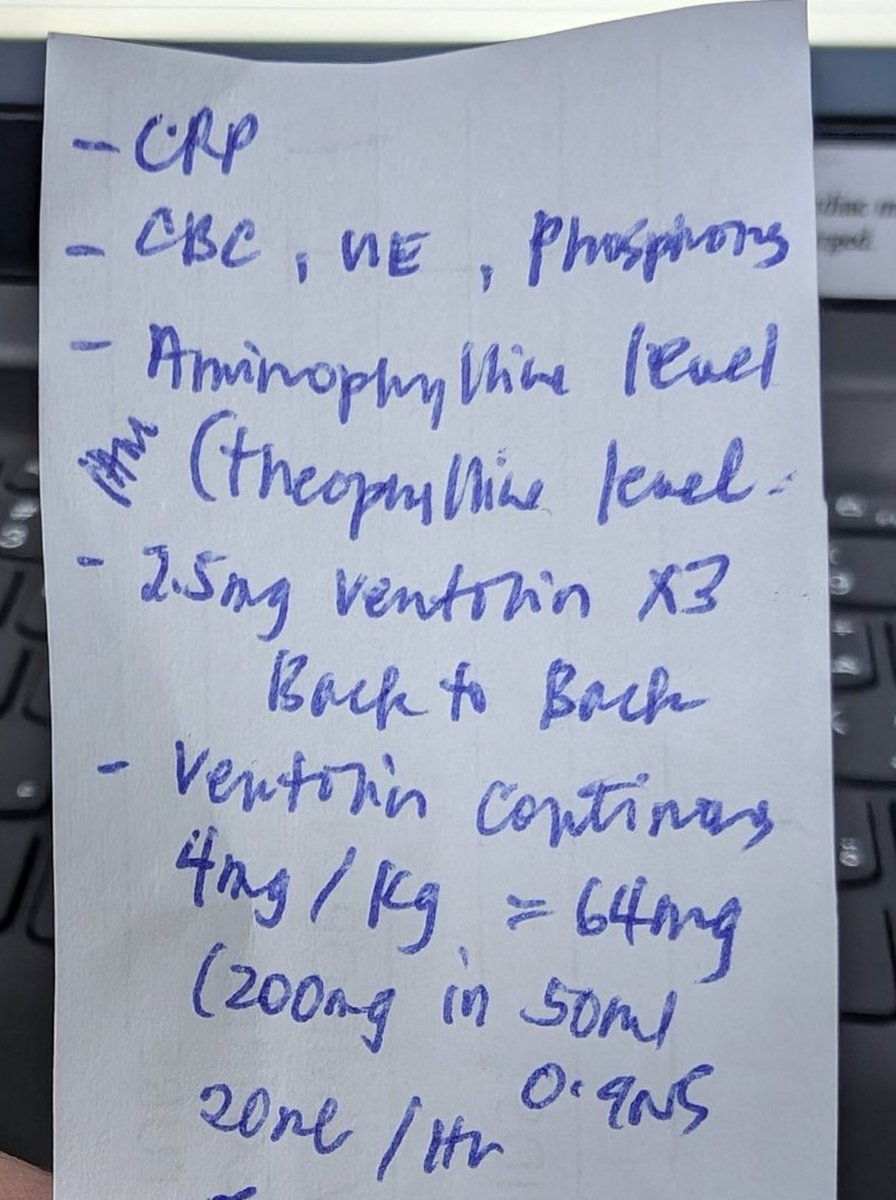 - CRP
- CBC, UE, Phosphorus
- Aminophylline level
(theophylline level.
- 2.5mg ventolin X3
Back to Back
- Ventolin continous
4mg/Kg = 64mg
(200mg in 50ml
0.9NS
20ml/Hr